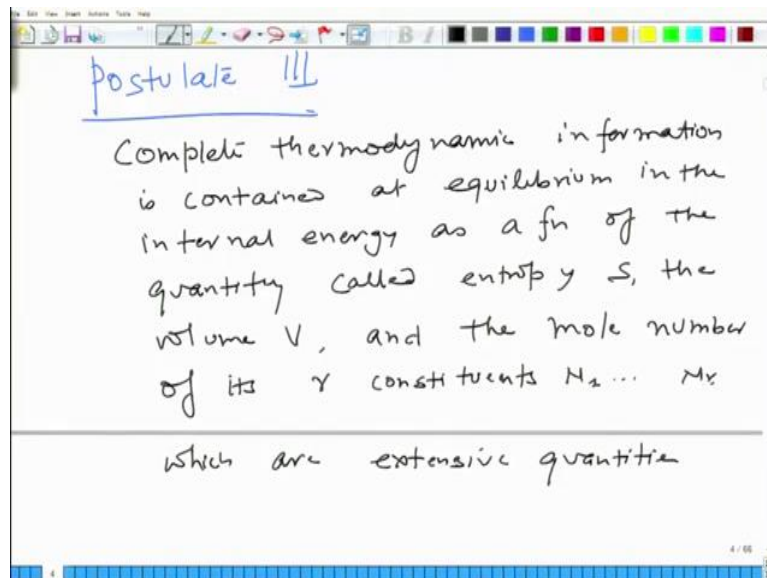 File Edit View Insert Actions Tools Help
Postulate III
Complete thermodynamic information
is contained at equilibrium in the
internal energy as a fn of the
quantity called entropy S, the
volume V, and the mole number
of its r constituents N1... Nr
which are extensive quantitie
4 / 66
4